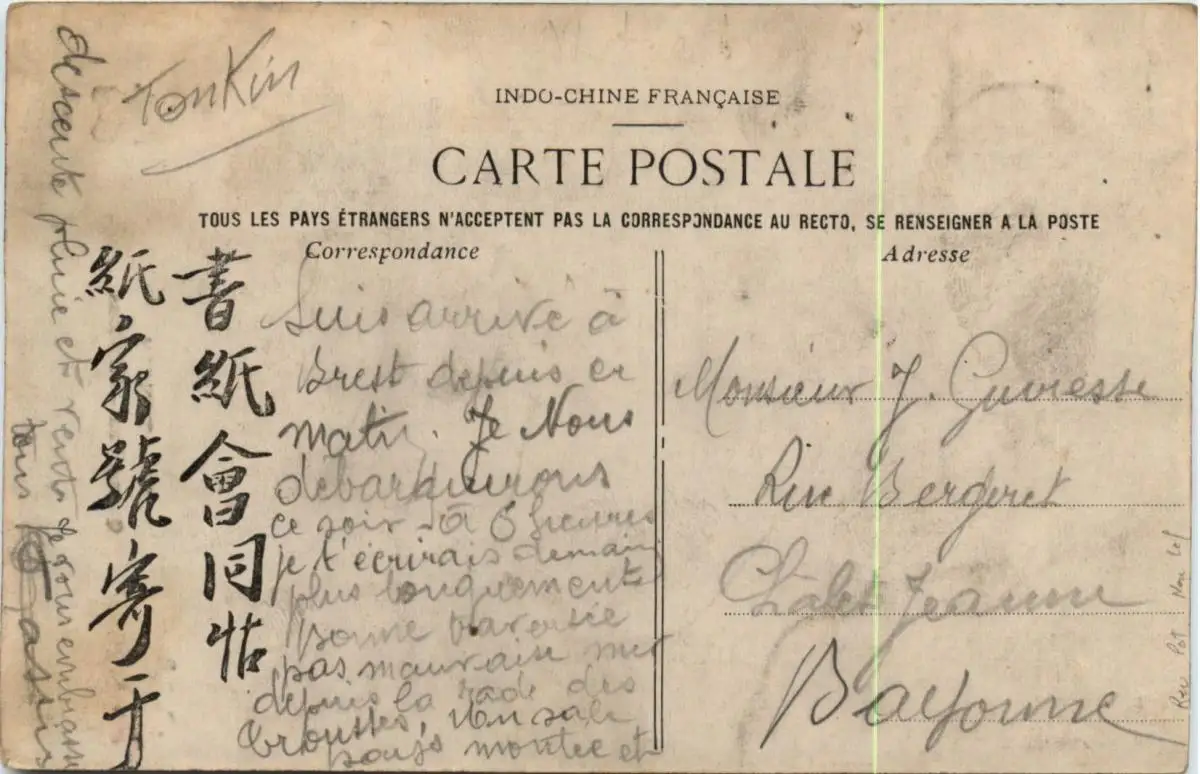 Tonkin
INDO-CHINE FRANÇAISE
CARTE POSTALE
TOUS LES PAYS ÉTRANGERS N'ACCEPTENT PAS LA CORRESPONDANCE AU RECTO, SE RENSEIGNER A LA POSTE
Correspondance
Adresse
書紙會同
紙家號寄于
Suis arrivé à
Brest depuis ce
matin. Je Nous
debarquerons
ce soir à 6 heures
je t'écrirais demain
plus longuement
Bonne traversée
pas mauvaise mer
depuis la rade des
pays montée et
descente pluie et vents Je vous embrasse
tous
Monsieur J.
Rue Bergeret
Châlet Jeanne
Bayonne